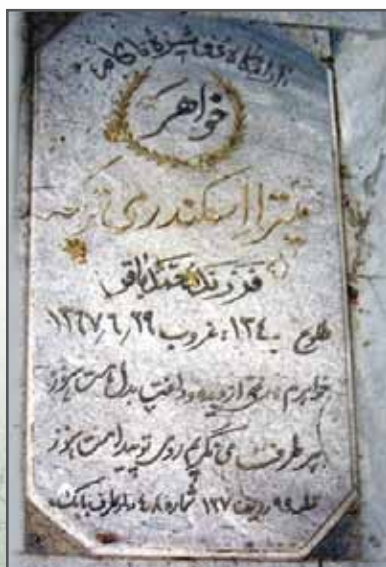 آرامگاه
خواهر
میترا اسکندری
فرزند محمد باقر
طلوع ۱۳۴۰ غروب ۱۳۶۷٫۶٫۲۹
خواهرم رفتی از دیده و داغت بدلها هست هنوز
هر طرف می نگرم روی تو پیداست هنوز
قطعه ۹۹ ردیف ۱۲۷ شماره